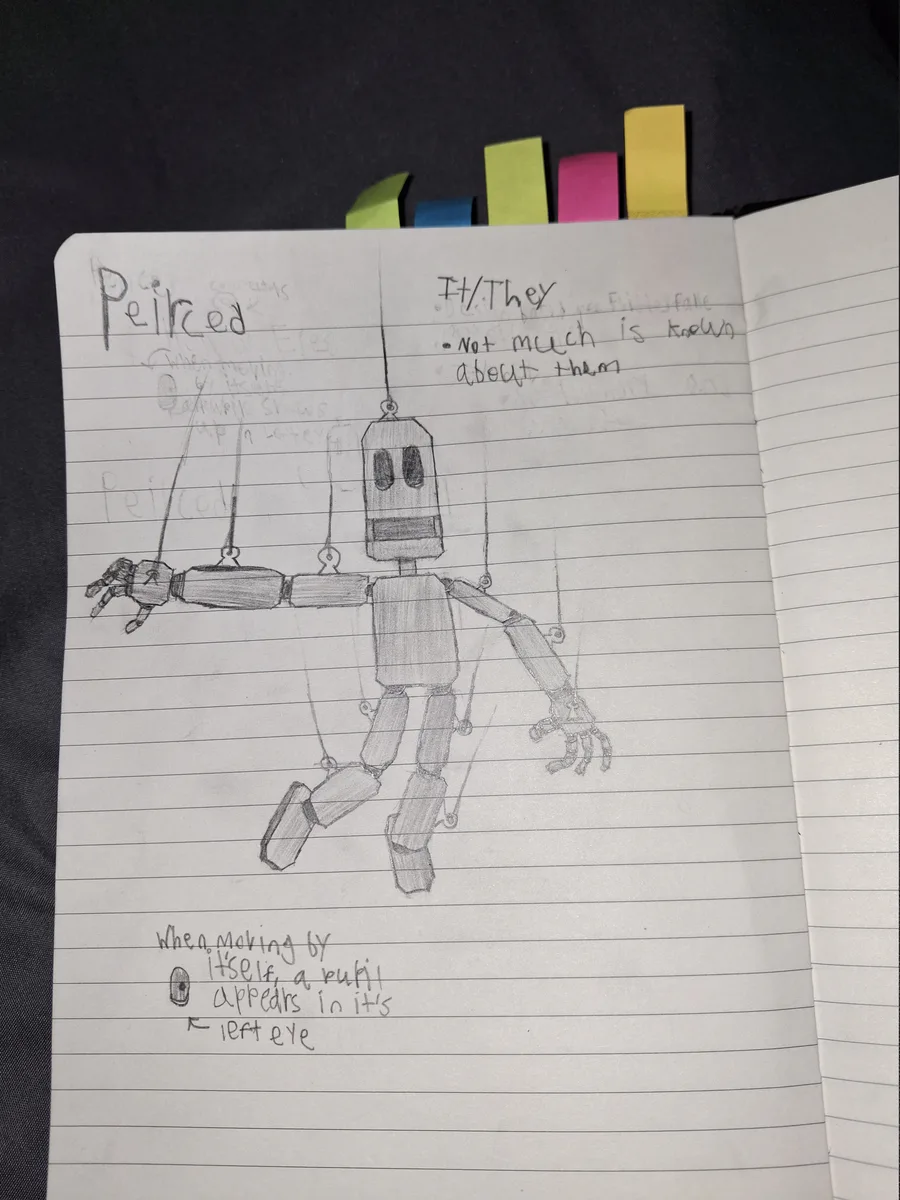 Peirced
It/They
• Not much is known
about them
When moving by
it'self, a pupil
appears in it's
left eye